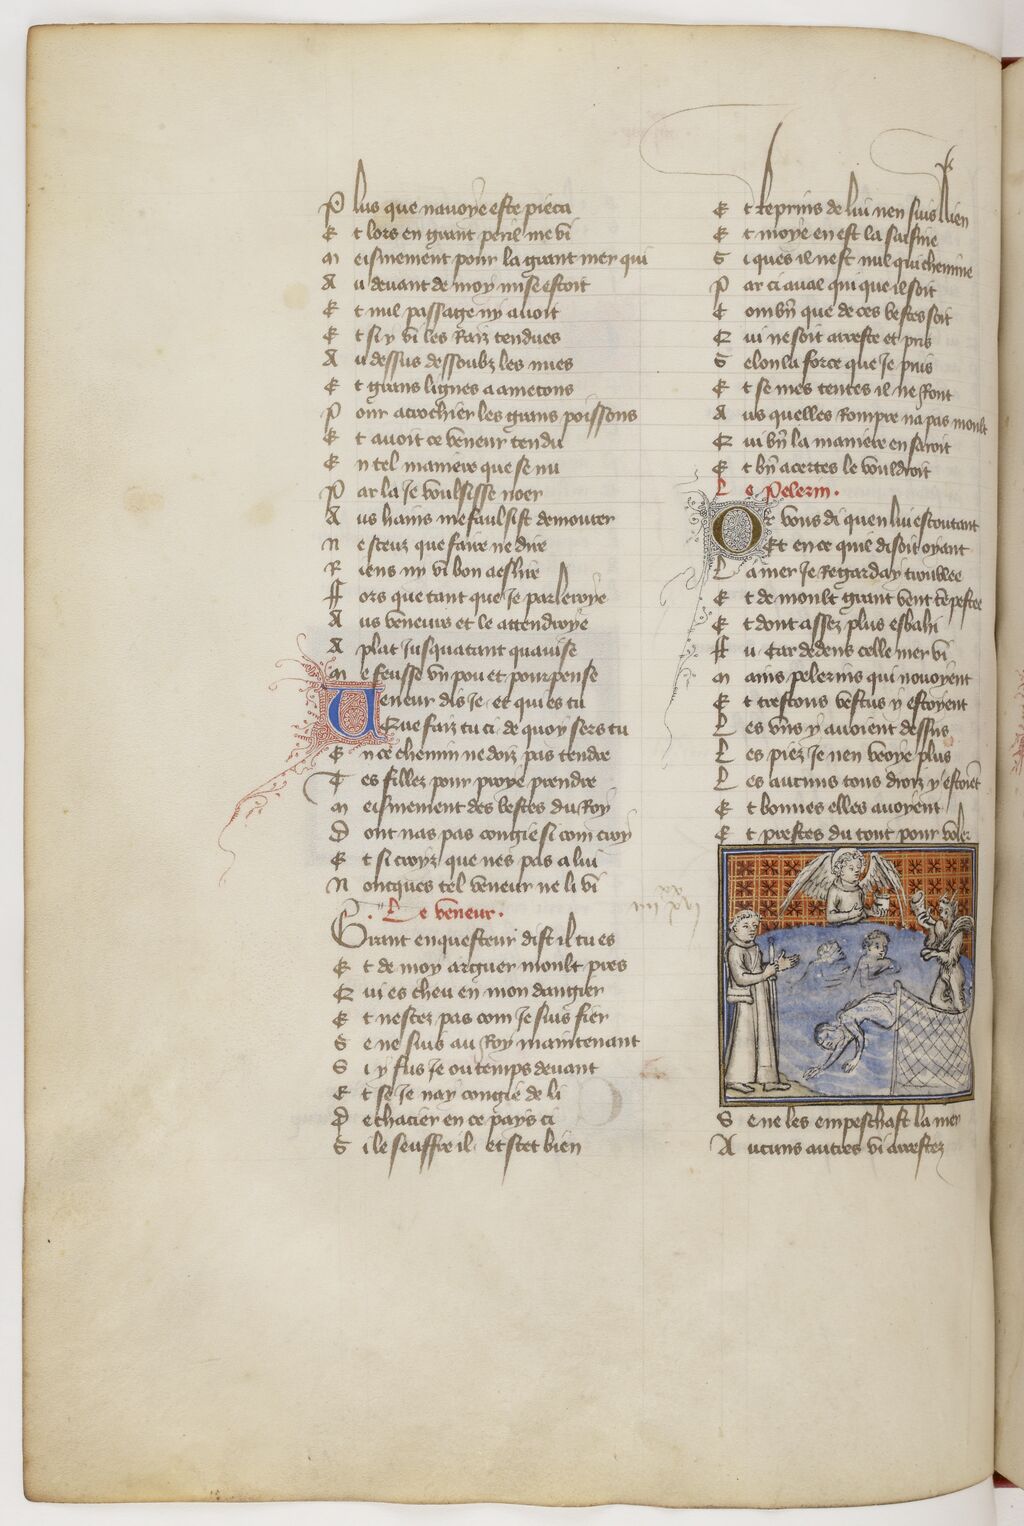 Plus que navoye este pieca
Et lors en grant peril me vi
Meismement pour la grant mer qui
Au devant de moy mise estoit
Et nul passage ny avoit
Et si y vi les Raiz tendues
Au dessus dessoubz les nues
Et grans lignes a amecons
Pour acrochier les grans poissons
Et avoit ce veneur tendu
En tel maniere que se nu
Par la Je voulsisse noer
Aus hains me faulsist demourer
Ne sceuz que faire ne dire
Riens ny vi bon a eslire
Fors que tant que Je parleroye
Aus veneurs et le attendroye
A plat Jusquatant quavise
Me feusse vn pou et pourpense
Veneur dis Je et qui es tu
Que faiz tu ci de quoy sers tu
En ce chemin ne doiz pas tendre
Tes fillez pour proye prendre
Meismement des bestes du Roy
Dont nas pas congie si com croy
Et si croyz que nes pas a lui
Noncques tel veneur ne li vi
Le veneur.
Grant enquesteur dist il tu es
Et de moy arguer moult pres
Qui es cheu en mon dangier
Et nescez pas com Je suis fier
Se ne suis au Roy maintenant
Si y fus Je ou temps devant
Et se Je nay congie de li
De chacier en ce pays ci
Si le seuffre il et scet bien
Et reprins de lui nen suis Rien
Et moye en est la saisine
Si ques il nest nul qui chemine
Par ci aval qui que il soit
Combn que de ces bestes soit
Qui ne soit arreste et pris
Selon la force que Je puis
Et se mes tentes il ne Ront
Aus quelles Rompre na pas moult
Qui bn la maniere en saroit
Et bn acertes le vouldroit
Le Pelerin.
Or vous di quen lui escoutant
Et en ce quil disoit oyant
La mer Je Regarday troublee
Et de moult grant vent tempestee
Et dont assez plus esbahi
Fu Car dedens celle mer vi
Mains pelerins qui nouoyent
Et trestous vestus y estoyent
Les vns y avoient dessus
Les piez Je nen veoye plus
Les aucuns tous droiz y estoient
Et bonnes elles avoyent
Et prestes du tout pour voler
Se ne les empeschast la mer
Aucuns autres vi arrestez